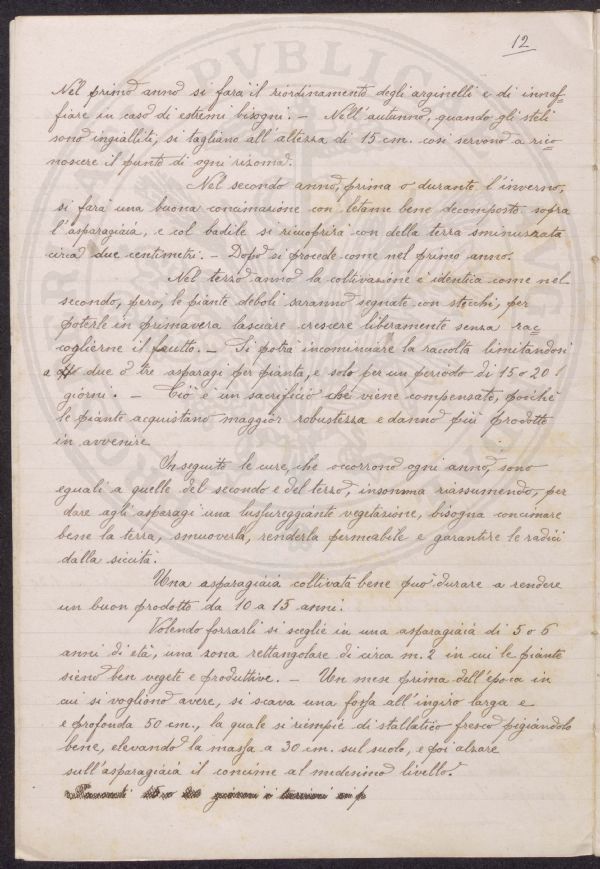 12
Nel primo anno si farà il riordinamento degli arginelli e di innaf-
fiare in caso di estremi bisogni. — Nell'autunno, quando gli steli
sono ingialliti, si tagliano all'altezza di 15 cm. così servono a rico-
noscere il punto di ogni rizoma.
Nel secondo anno, prima o durante l'inverno,
si farà una buona concimazione con letame bene decomposto sopra
l'asparagiaia, e col badile si ricoprirà con della terra sminuzzata
circa due centimetri. — Dopo si procede come nel primo anno.
Nel terzo anno la coltivazione è identica come nel
secondo, però, le piante deboli saranno segnate con stecchi, per
poterle in primavera lasciare crescere liberamente senza rac
coglierne il frutto. — Si potrà incominciare la raccolta limitandosi
a due o tre asparagi per pianta, e solo per un periodo di 15 o 20
giorni. — Ciò è un sacrificio che viene compensato, poichè
le piante acquistano maggior robustezza e danno più prodotto
in avvenire.
In seguito le cure, che occorrono ogni anno, sono
eguali a quelle del secondo e del terzo, insomma riassumendo, per
dare agli asparagi una lussureggiante vegetazione, bisogna concimare
bene la terra, smuoverla, renderla permeabile e garantire le radici
dalla siccità.
Una asparagiaia coltivata bene può durare a rendere
un buon prodotto da 10 a 15 anni.
Volendo forzarli si sceglie in una asparagiaia di 5 o 6
anni di età, una zona rettangolare di circa m. 2 in cui le piante
sieno ben vegete e produttive. — Un mese prima dell'época in
cui si vogliono avere, si scava una fossa all'ingiro larga e
e profonda 50 cm., la quale si riempie di stallatico fresco pigiandolo
bene, elevando la massa a 30 cm. sul suolo, e poi alzare
sull'asparagiaia il concime al medesimo livello.